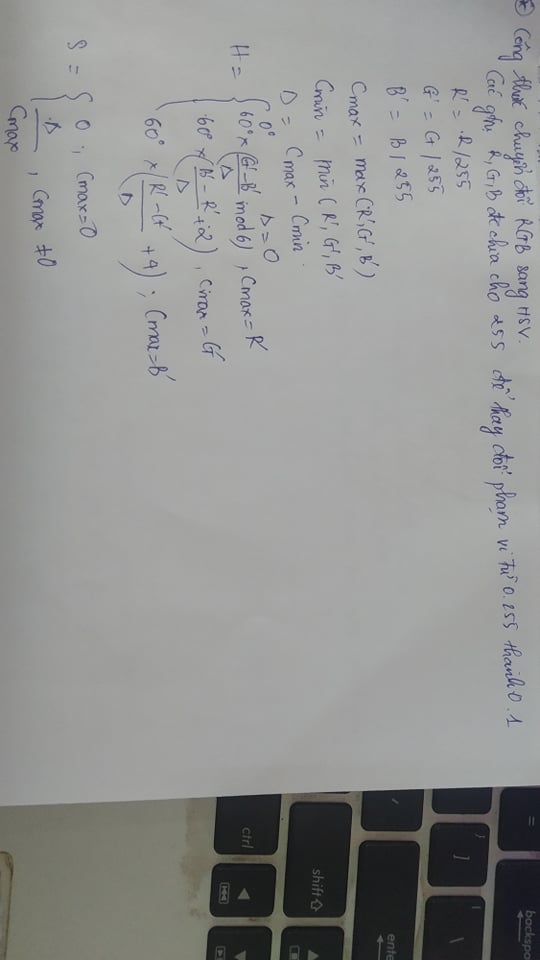 Công thức chuyển đổi RGB sang HSV.
Các giá trị R, G, B đc chia cho 255 để thay đổi phạm vi từ 0.255 thành 0.1
R' = R/255
G' = G/255
B' = B/255
Cmax = max(R', G', B')
Cmin = min(R', G', B'
Δ = Cmax - Cmin
0° Δ = 0
H = 60° × (G' - B' / Δ mod 6), Cmax = R'
60° × (B' - R' / Δ + 2), Cmax = G'
60° × (R' - G' / Δ + 4); Cmax = B'
S = 0; Cmax = 0
Δ / Cmax, Cmax ≠ 0
=
backspa
}
]
|
\
ente
shift
ctrl